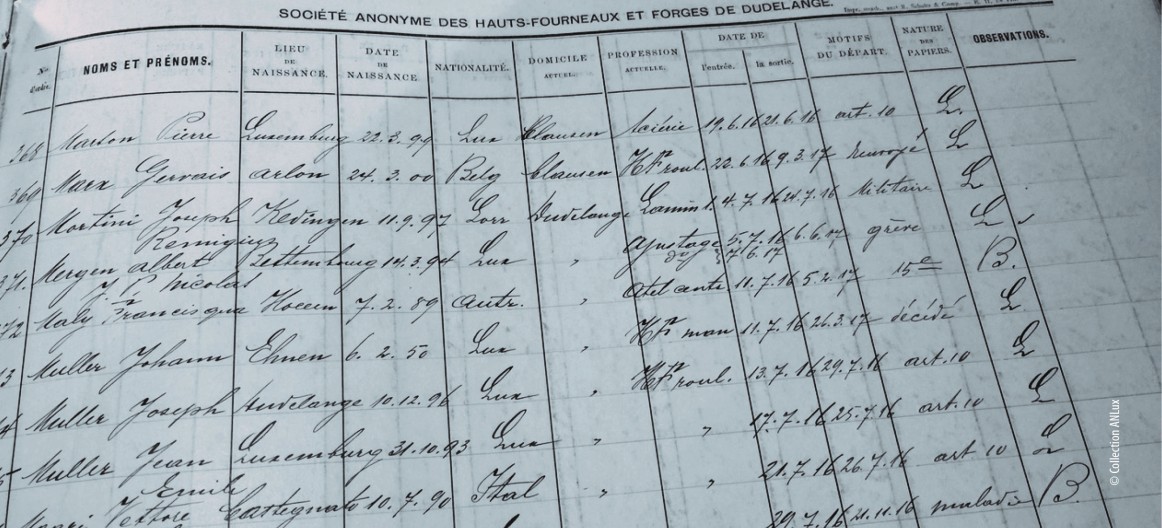 SOCIÉTÉ ANONYME DES HAUTS-FOURNEAUX ET FORGES DE DUDELANGE.
Nº d'ordre. NOMS ET PRÉNOMS. LIEU DE NAISSANCE. DATE DE NAISSANCE. NATIONALITÉ. DOMICILE ACTUEL. PROFESSION ACTUELLE. DATE DE l'entrée. la sortie. MOTIFS DU DÉPART. NATURE DES PAPIERS. OBSERVATIONS.
368 Marson Pierre Luxemburg 22.3.99 Lux Clausen Aciérie 19.6.16 21.6.16 art. 10 L
369 Marx Gervais Arlon 24.3.00 Belg Clausen roul. 22.6.16 9.3.17 L
370 Martini Joseph Kedingen 11.9.97 Lorr Dudelange Lamin 1.4.7.16 Militaire L
Remigius
371. Mergen Albert Bettembourg 14.3.94 Lux " Ajustage 5.7.16 6.6.17 grève L
J. P. Nicolas 7.6.17
72 Maly Francisqua 7.2.89 Autr. " 11.7.16 5.2.17 15e B.
3 Muller Johann Ehnen 6.2.50 Lux " man 11.7.16 26.3.17 décédé L
Muller Joseph Dudelange 10.12.96 Lux " roul. 13.7.16 29.7.16 art. 10 L
5 Muller Jean Luxemburg 31.10.93 Lux " " 17.7.16 25.7.16 art. 10 L
Emile
Vettore Castegnato 10.7.90 Ital " " 21.7.16 26.7.16 art 10 L
29.7.16 21.11.16 maladie B.
© Collection ANLux